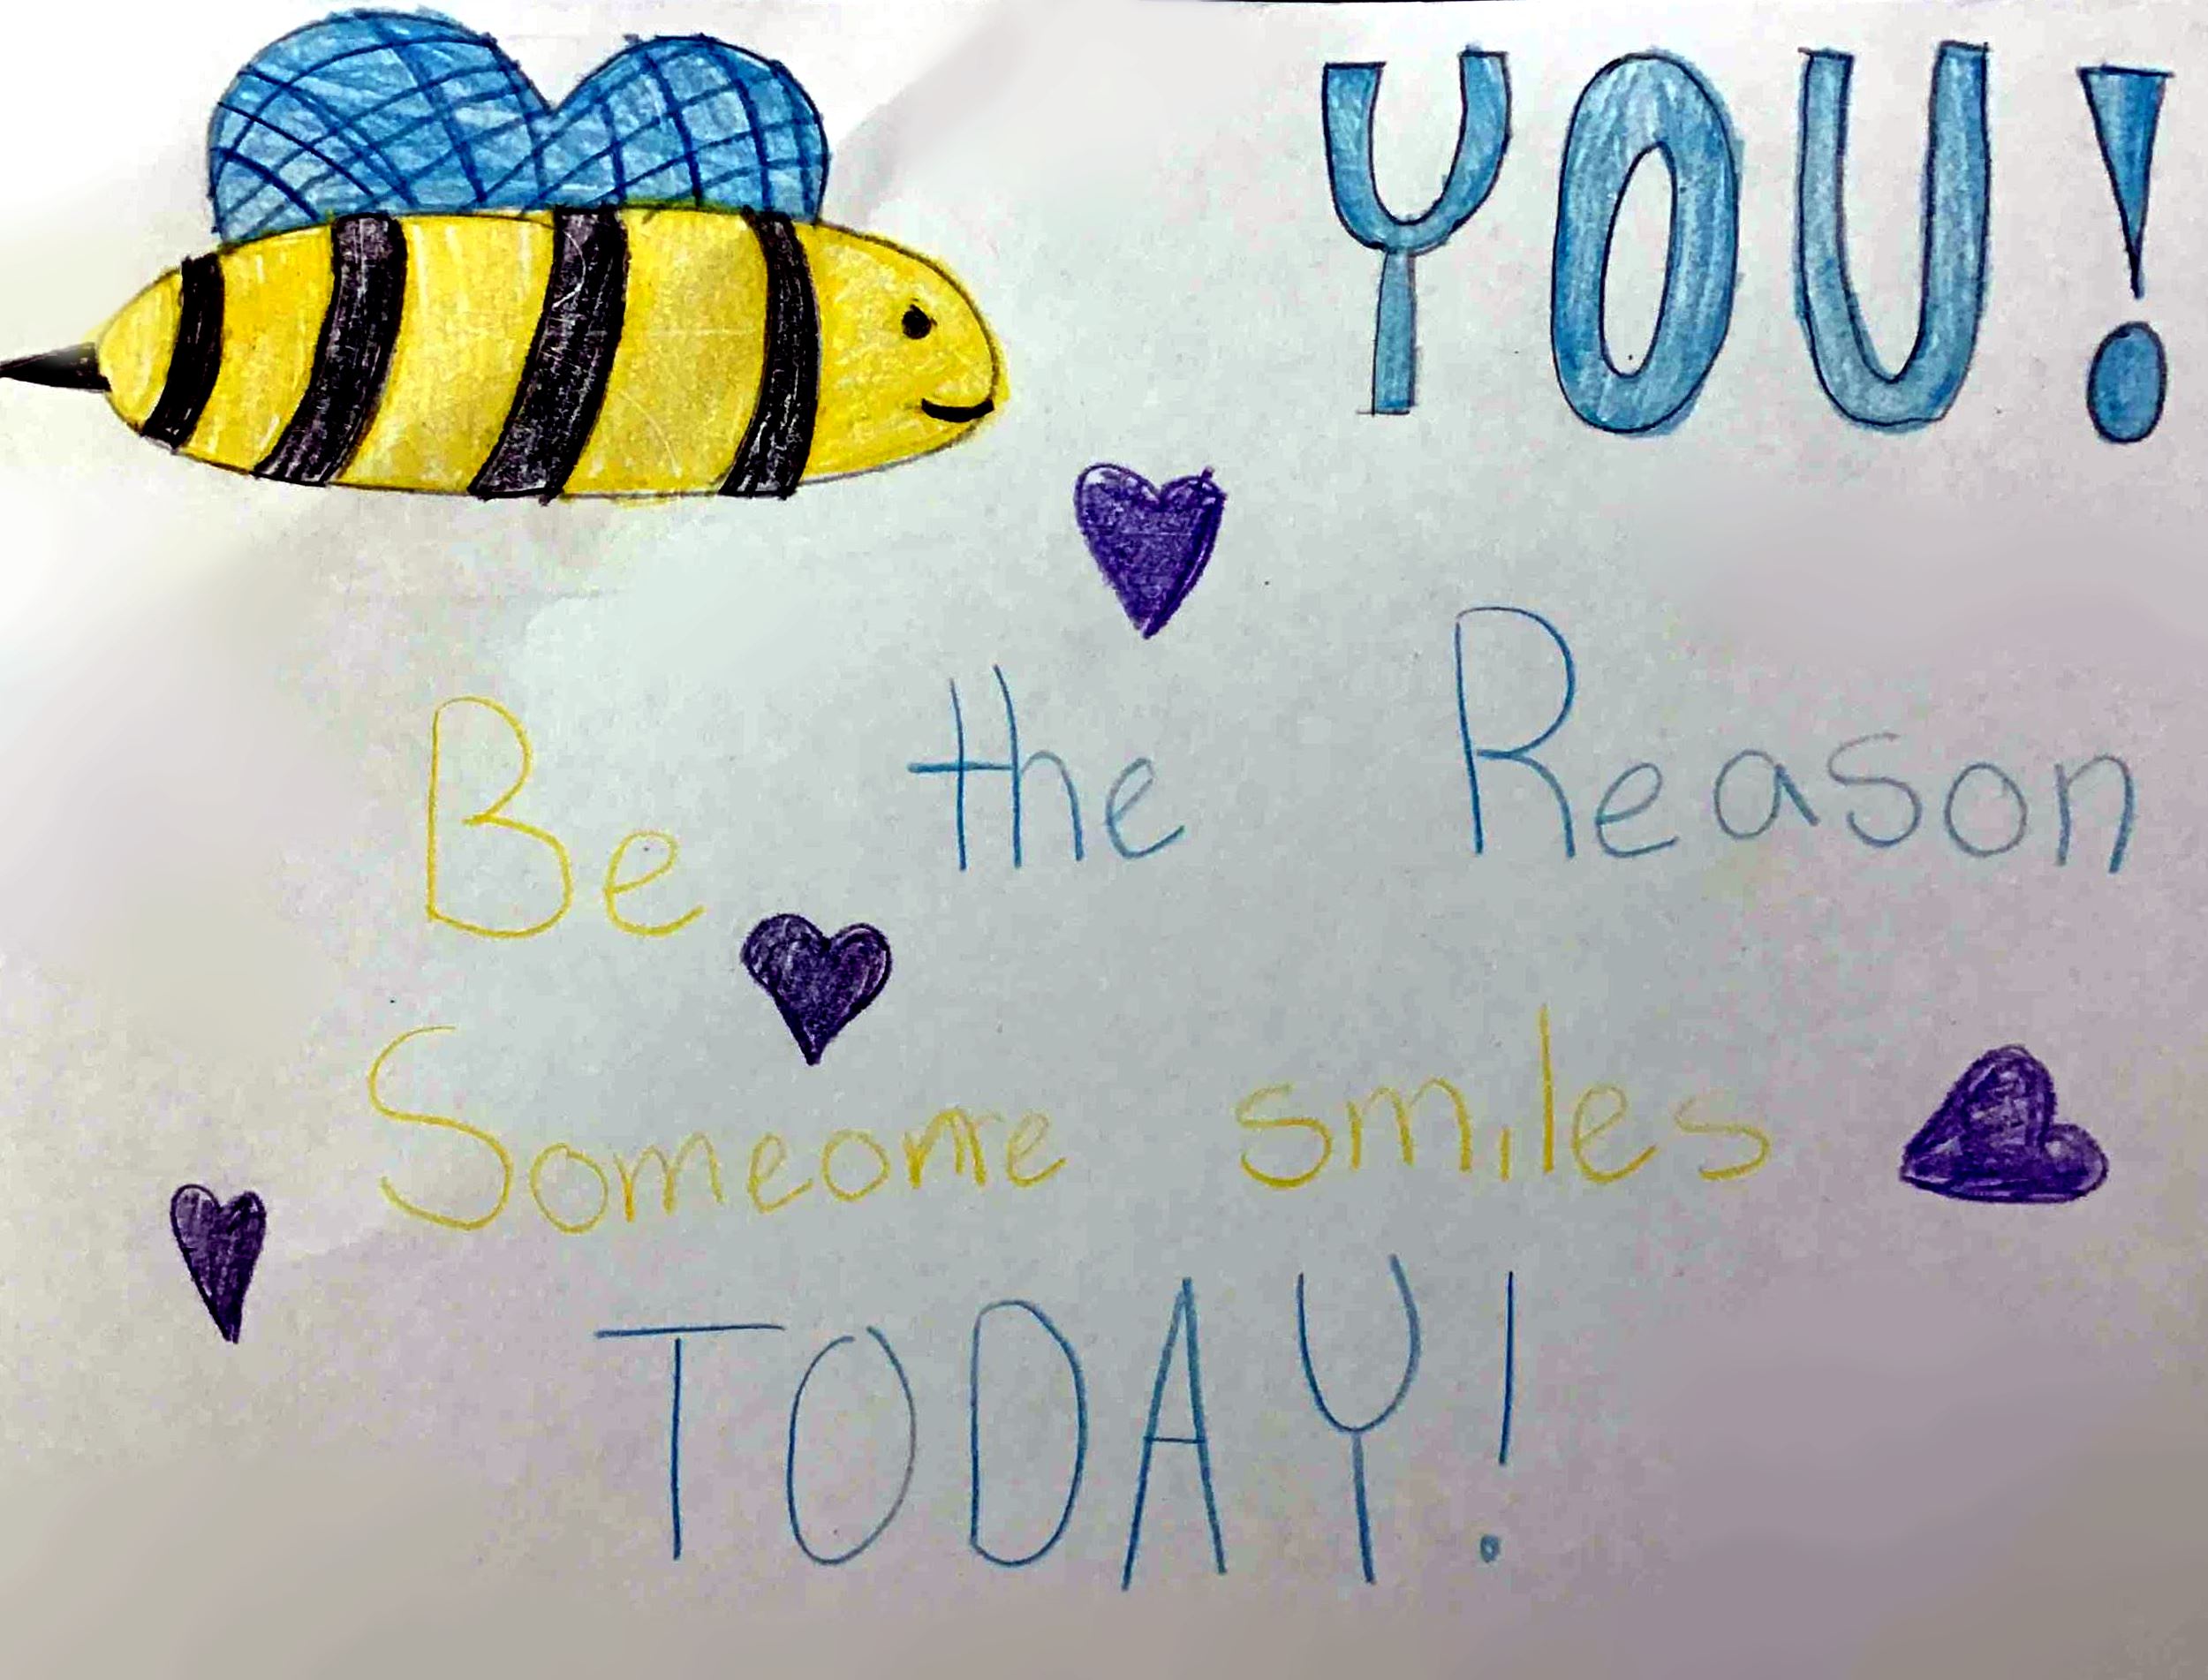 YOU!
Be the Reason
Someone smiles
TODAY!